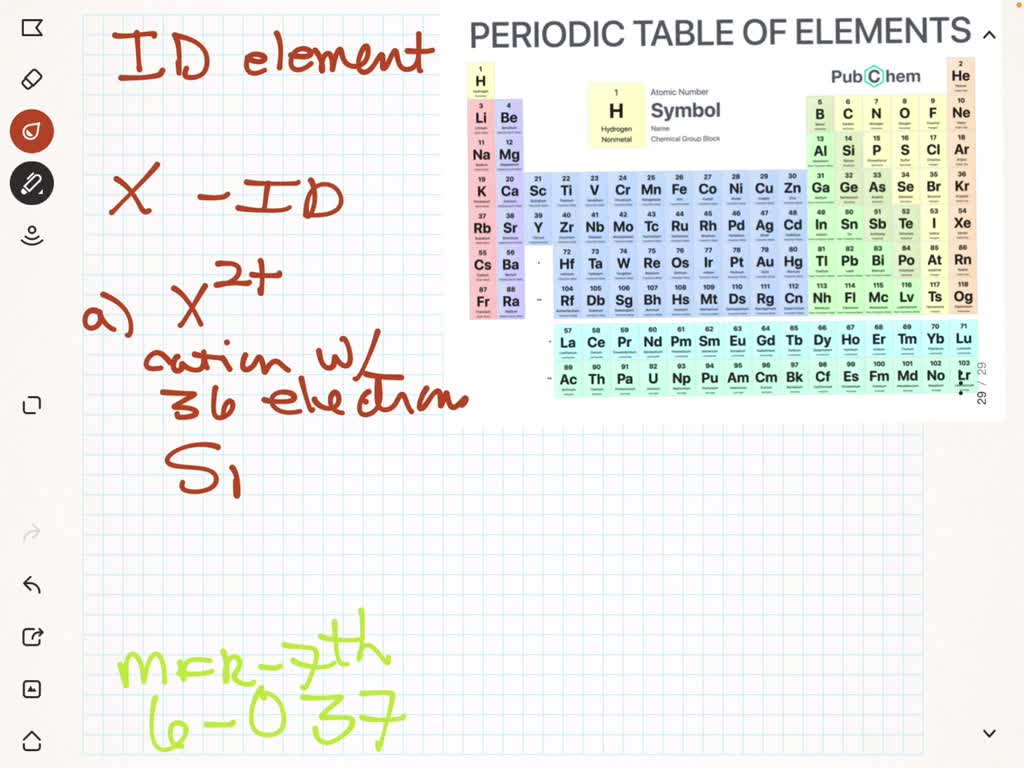 ID element
X - ID
a) X2+
cation w/
36 electrons
Sr
MFR - 7th
6-037
PERIODIC TABLE OF ELEMENTS
PubChem
1 Atomic Number
H Symbol
Hydrogen Name
Nonmetal Chemical Group Block
1 2
H He
3 4 5 6 7 8 9 10
Li Be B C N O F Ne
11 12 13 14 15 16 17 18
Na Mg Al Si P S Cl Ar
19 20 21 22 23 24 25 26 27 28 29 30 31 32 33 34 35 36
K Ca Sc Ti V Cr Mn Fe Co Ni Cu Zn Ga Ge As Se Br Kr
37 38 39 40 41 42 43 44 45 46 47 48 49 50 51 52 53 54
Rb Sr Y Zr Nb Mo Tc Ru Rh Pd Ag Cd In Sn Sb Te I Xe
55 56 72 73 74 75 76 77 78 79 80 81 82 83 84 85 86
Cs Ba Hf Ta W Re Os Ir Pt Au Hg Tl Pb Bi Po At Rn
87 88 104 105 106 107 108 109 110 111 112 113 114 115 116 117 118
Fr Ra Rf Db Sg Bh Hs Mt Ds Rg Cn Nh Fl Mc Lv Ts Og
57 58 59 60 61 62 63 64 65 66 67 68 69 70 71
La Ce Pr Nd Pm Sm Eu Gd Tb Dy Ho Er Tm Yb Lu
89 90 91 92 93 94 95 96 97 98 99 100 101 102 103
Ac Th Pa U Np Pu Am Cm Bk Cf Es Fm Md No Lr
29 / 29